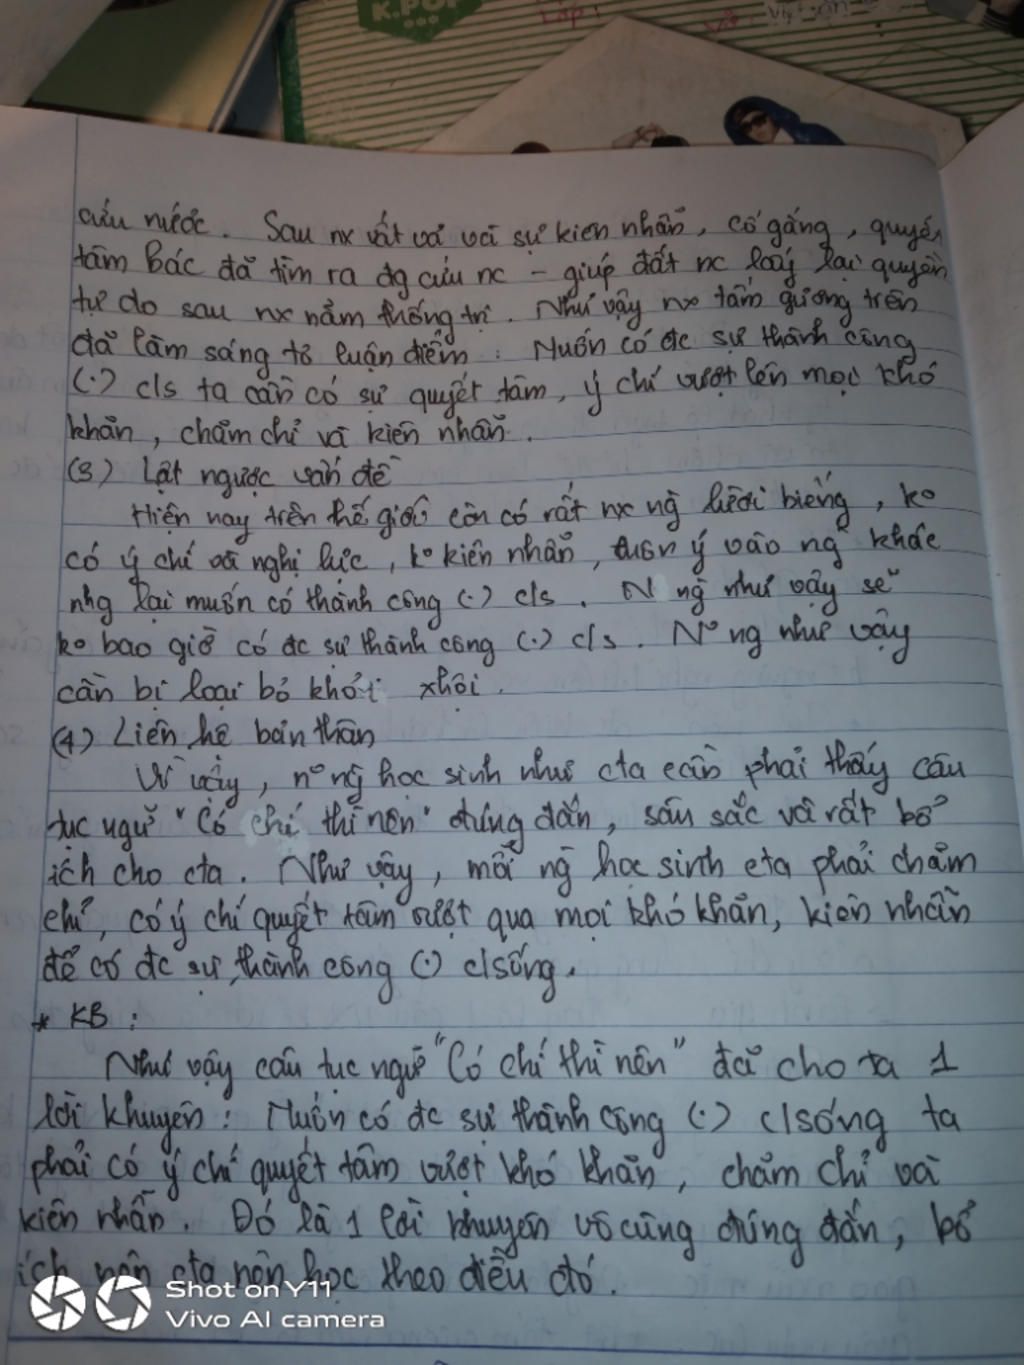 K.POP
Lớp:
cứu nước. Sau nx vất vả và sự kiên nhẫn, cố gắng, quyết
tâm Bác đã tìm ra đg cứu nc - giúp đất nc lấy lại quyền
tự do sau nx năm thống trị. Như vậy nx tấm gương trên
đã làm sáng tỏ luận điểm: Muốn có đc sự thành công
(.) c/s ta cần có sự quyết tâm, ý chí vượt lên mọi khó
khăn, chăm chỉ và kiên nhẫn.
(3) Lật ngược vấn đề
Hiện nay trên thế giới còn có rất nx ng lười biếng, ko
có ý chí và nghị lực, ko kiên nhẫn, ý vào ng khác
nhg lại muốn có thành công (.) c/s. N ng như vậy sẽ
ko bao giờ có đc sự thành công (.) c/s. N° ng như vậy
cần bị loại bỏ khỏi xhội.
(4) Liên hệ bản thân
Vì vậy, n° ng học sinh như cta cần phải thấy câu
tục ngữ "Có chí thì nên" đúng đắn, sâu sắc và rất bổ
ích cho cta. Như vậy, mỗi ng học sinh cta phải chăm
chỉ, có ý chí quyết tâm vượt qua mọi khó khăn, kiên nhẫn
để có đc sự thành công (.) c/sống.
* KB:
Như vậy câu tục ngữ "Có chí thì nên" đã cho ta 1
lời khuyên: Muốn có đc sự thành công (.) c/sống ta
phải có ý chí quyết tâm vượt khó khăn, chăm chỉ và
kiên nhẫn. Đó là 1 lời khuyên vô cùng đúng đắn, bổ
ích nên cta nên học theo điều đó.
Shot on Y11
Vivo AI camera